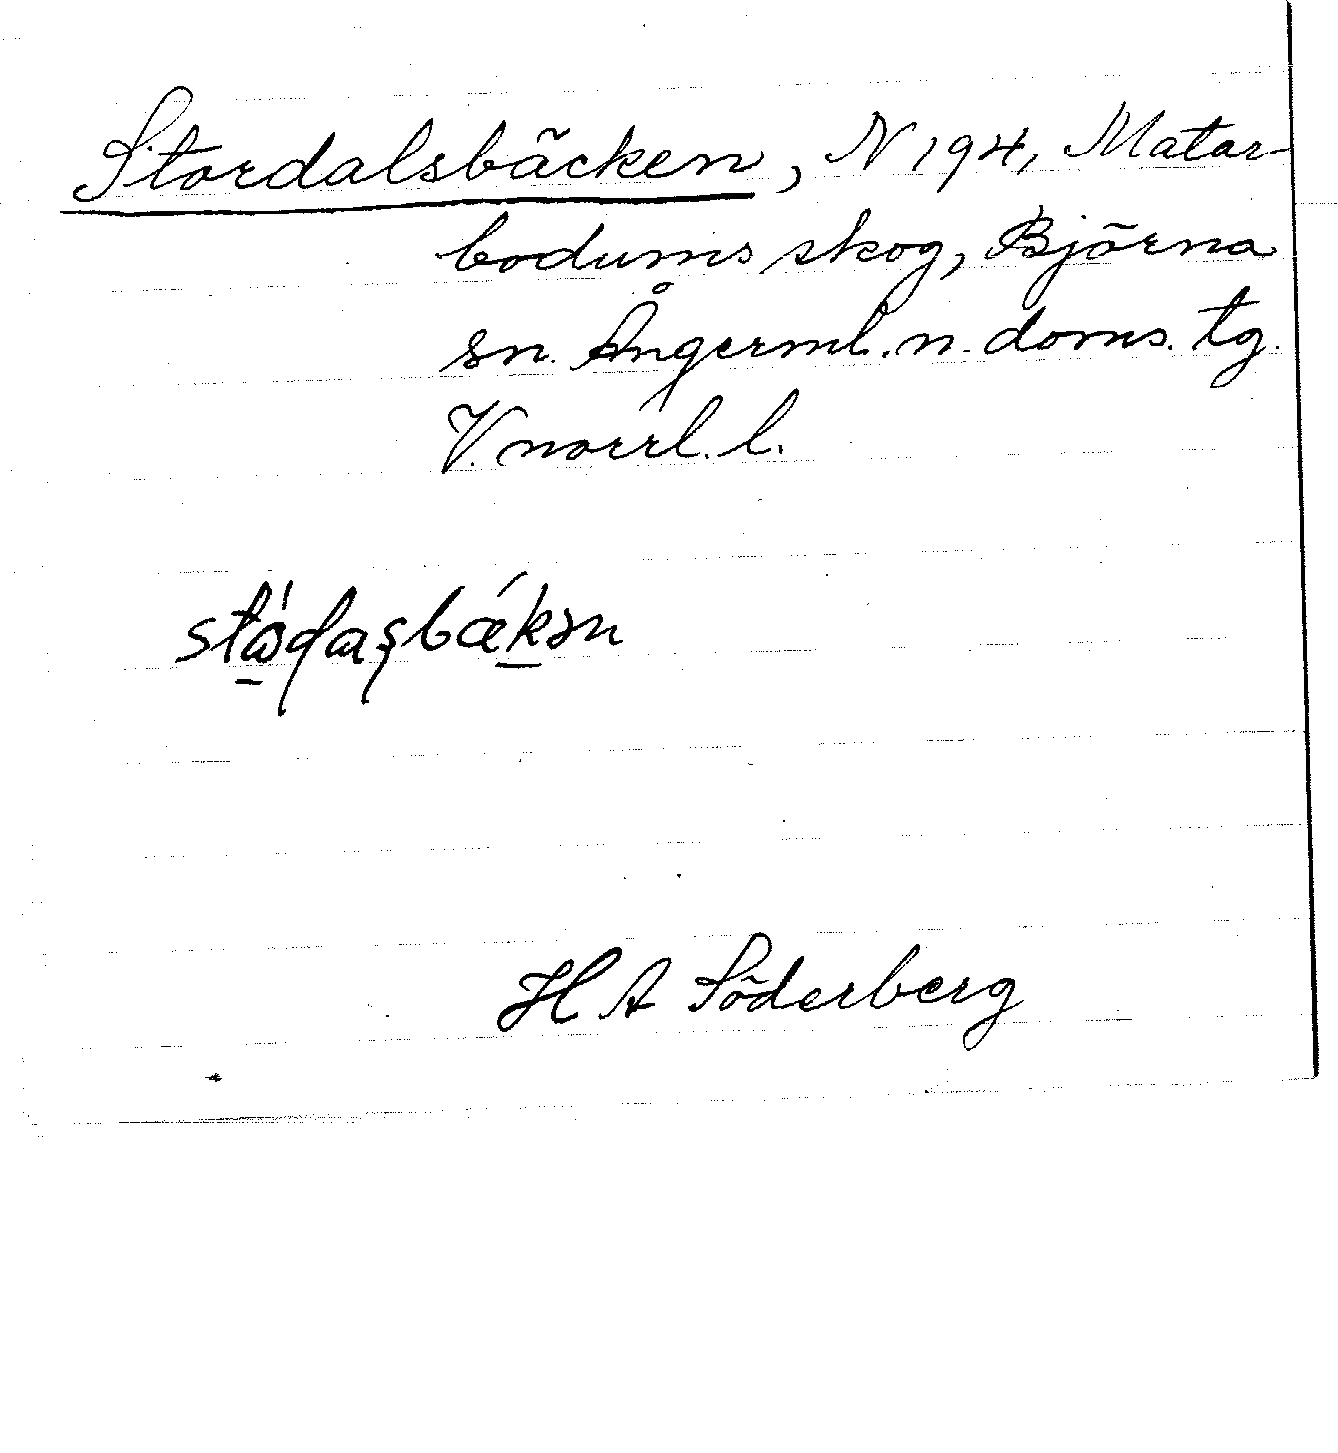 Stordalsbäcken, N 194, Matar-
bodums skog, Björna
sn. Ångerml. n. doms. tg.
V. norrl. l.
H A Söderberg